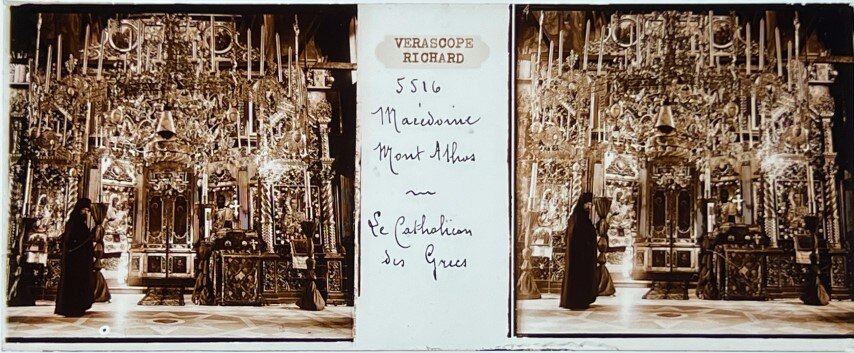 VERASCOPE
RICHARD
5516
Macédoine
Mont Athos
Le Catholicon
des Grecs